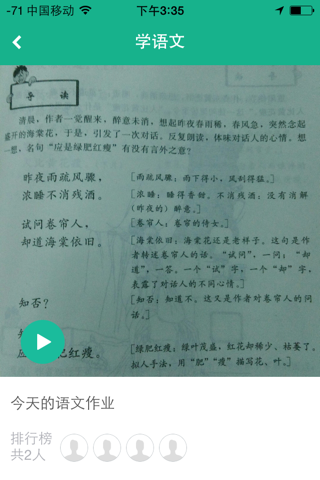 -71 中国移动 下午3:35
学语文
导 读
清晨，作者一觉醒来，醉意未消，想起昨夜春雨稀，春风急，突然念起
盛开的海棠花，于是，引发了一次对话。反复朗读，体味对话人的心情。想一
想，名句“应是绿肥红瘦”有没有言外之意？
昨夜雨疏风骤，
[雨疏风骤：雨下得小，风刮得猛。]
浓睡不消残酒。
[浓睡：睡得香甜。不消残酒：没有消解
（昨夜的）醉意。]
试问卷帘人，
[卷帘人：卷帘的侍女。]
却道海棠依旧。
[海棠依旧：海棠花还是老样子。这句是作
者转述卷帘人的话。“试问”，一问；“却
道”，一答。一个“试”字，一个“却”字，
表露了对话人的不同心情。]
知否？
[知否：知道不。这又是作者对卷帘人的问
话。]
应 肥红瘦。
[绿肥红瘦：绿叶茂盛，红花却稀少、枯萎了。
拟人手法，用“肥”“瘦”描写花、叶。]
今天的语文作业
排行榜
共2人